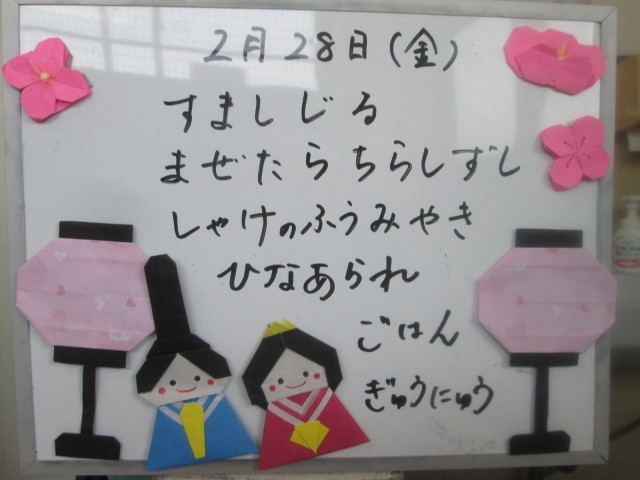 2月28日(金)
すましじる
まぜたらちらしずし
しゃけのふうみやき
ひなあられ
ごはん
ぎゅうにゅう